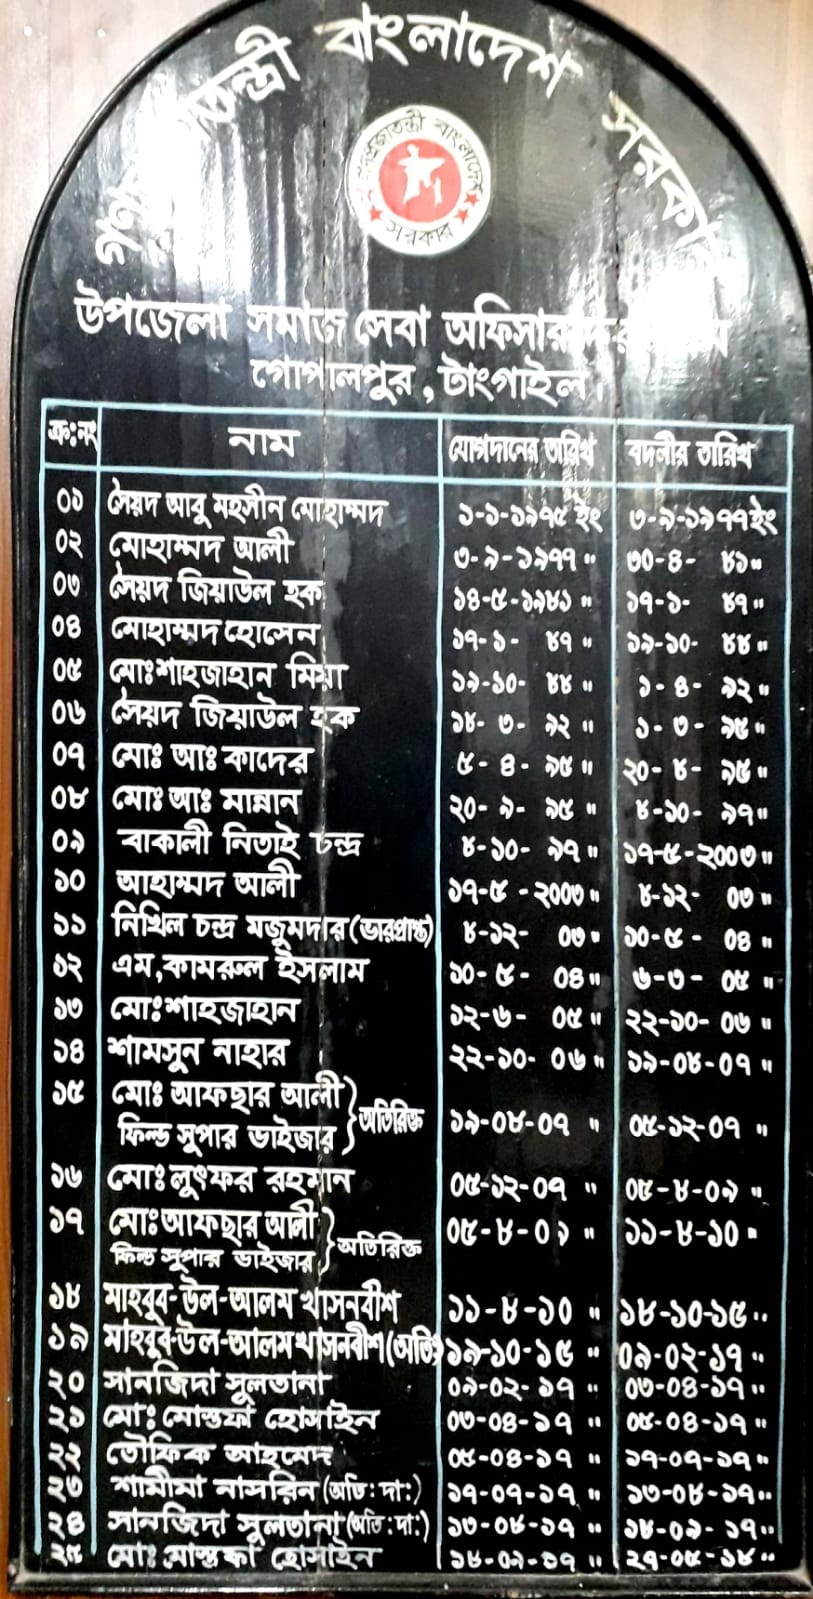 বাংলাদেশ সরকার
গণপ্রজাতন্ত্রী বাংলাদেশ
সরকার
উপজেলা সমাজ সেবা
গোপালপুর, টাংগাইল।
ক্র:নং নাম যোগদানের তারিখ বদলীর তারিখ
০১ সৈয়দ আবু মহসীন মোহাম্মদ ১-১-১৯৭৫ ইং ৩-৯-১৯৭৭ ইং
০২ মোহাম্মদ আলী ৩-৯-১৯৭৭ " ৩০-৪- ৮১ "
০৩ সৈয়দ জিয়াউল হক ১৪-৫-১৯৮১ " ১৭-১- ৮৭ "
০৪ মোহাম্মদ হোসেন ১৭-১- ৮৭ " ১৯-১০- ৮৮ "
০৫ মোঃ শাহজাহান মিয়া ১৯-১০- ৮৮ " ১-৪-৯২ "
০৬ সৈয়দ জিয়াউল হক ১৮-৩-৯২ " ১-৩-৯৫ "
০৭ মোঃ আঃ কাদের ৫-৪-৯৫ " ২০-৮-৯৫ "
০৮ মোঃ আঃ মান্নান ২০-৯-৯৫ " ৮-১০-৯৭ "
০৯ বাকালী নিতাই চন্দ্র ৮-১০-৯৭ " ১৭-৫-২০০৩ "
১০ আহাম্মদ আলী ১৭-৫-২০০৩ " ৮-১২- ০৩ "
১১ নিখিল চন্দ্র মজুমদার (ভারপ্রাপ্ত) ৮-১২- ০৩ " ১০-৫-০৪ "
১২ এম,কামরুল ইসলাম ১০-৫- ০৪ " ৬-৩-০৫ "
১৩ মোঃ শাহজাহান ১২-৬- ০৫ " ২২-১০-০৬ "
১৪ শামসুন নাহার ২২-১০-০৬ " ১৯-০৮-০৭ "
১৫ মোঃ আফছার আলী
ফিল্ড সুপার ভাইজার } অতিরিক্ত ১৯-০৮-০৭ " ০৫-১২-০৭ "
১৬ মোঃ লুৎফর রহমান ০৫-১২-০৭ " ০৫-৮-০৯ "
১৭ মোঃ আফছার আলী
ফিল্ড সুপার ভাইজার } অতিরিক্ত ০৫-৮-০৯ " ১১-৮-১০ "
১৮ মাহবুব-উল-আলম খাসনবীশ ১১-৮-১০ " ১৮-১০-১৫ "
১৯ মাহবুব-উল-আলম খাসনবীশ (অতিঃ) ১৯-১০-১৫ " ০৯-০২-১৭ "
২০ সানজিদা সুলতানা ০৯-০২-১৭ " ০৩-০৪-১৭ "
২১ মোঃ মোস্তফা হোসাইন ০৩-০৪-১৭ " ০৫-০৪-১৭ "
২২ তৌফিক আহমেদ ০৫-০৪-১৭ " ১৭-০৭-১৭ "
২৩ শামীমা নাসরিন (অতি:দা:) ১৭-০৭-১৭ " ১৩-০৮-১৭ "
২৪ সানজিদা সুলতানা (অতি:দা:) ১৩-০৮-১৭ " ১৮-০৯-১৭ "
২৫ মোঃ মোস্তফা হোসাইন ১৮-০৯-১৭ " ২৭-০৫-১৮ "